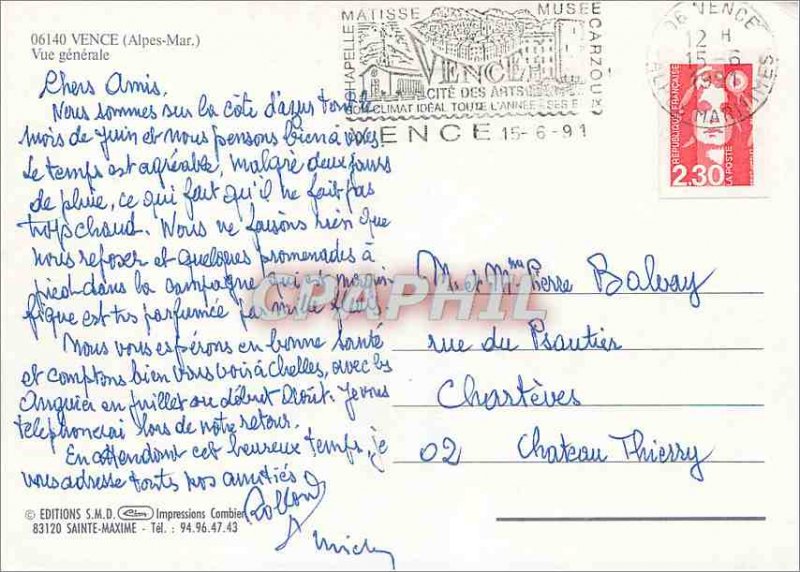 06140 VENCE (Alpes-Mar.)
Vue générale
CHAPELLE MATISSE MUSEE CARZOU
VENCE
CITÉ DES ARTS
SON CLIMAT IDEAL TOUTE L'ANNEE - SES F
VENCE 15-6-91
06 VENCE
12 H
15-6
1991
ALPES MARITIMES
REPUBLIQUE FRANÇAISE
LA POSTE
2,30
Chers Amis.
Nous sommes sur la côte d'azur tout le
mois de juin et nous pensons bien à vous
Le temps est agréable, malgré deux jours
de pluie, ce qui fait qu'il ne fait pas
trop chaud. Nous ne faisons rien que
nous reposer et quelques promenades à
pied dans la campagne qui est magni
fique est très parfumée par mille fleurs
Nous vous espérons en bonne santé
et comptons bien vous voir à chelles, avec les
Anguier en juillet ou début Août. Je vous
telephonerai lors de notre retour.
En attendant cet heureux temps, je
vous adresse toutes nos amitiés
M. et Mme Pierre Balvay
rue du Psautier
Chartèves
02 Chateau Thierry
CPAPHIL
© EDITIONS S.M.D. Impressions Combier
83120 SAINTE-MAXIME - Tél. : 94.96.47.43